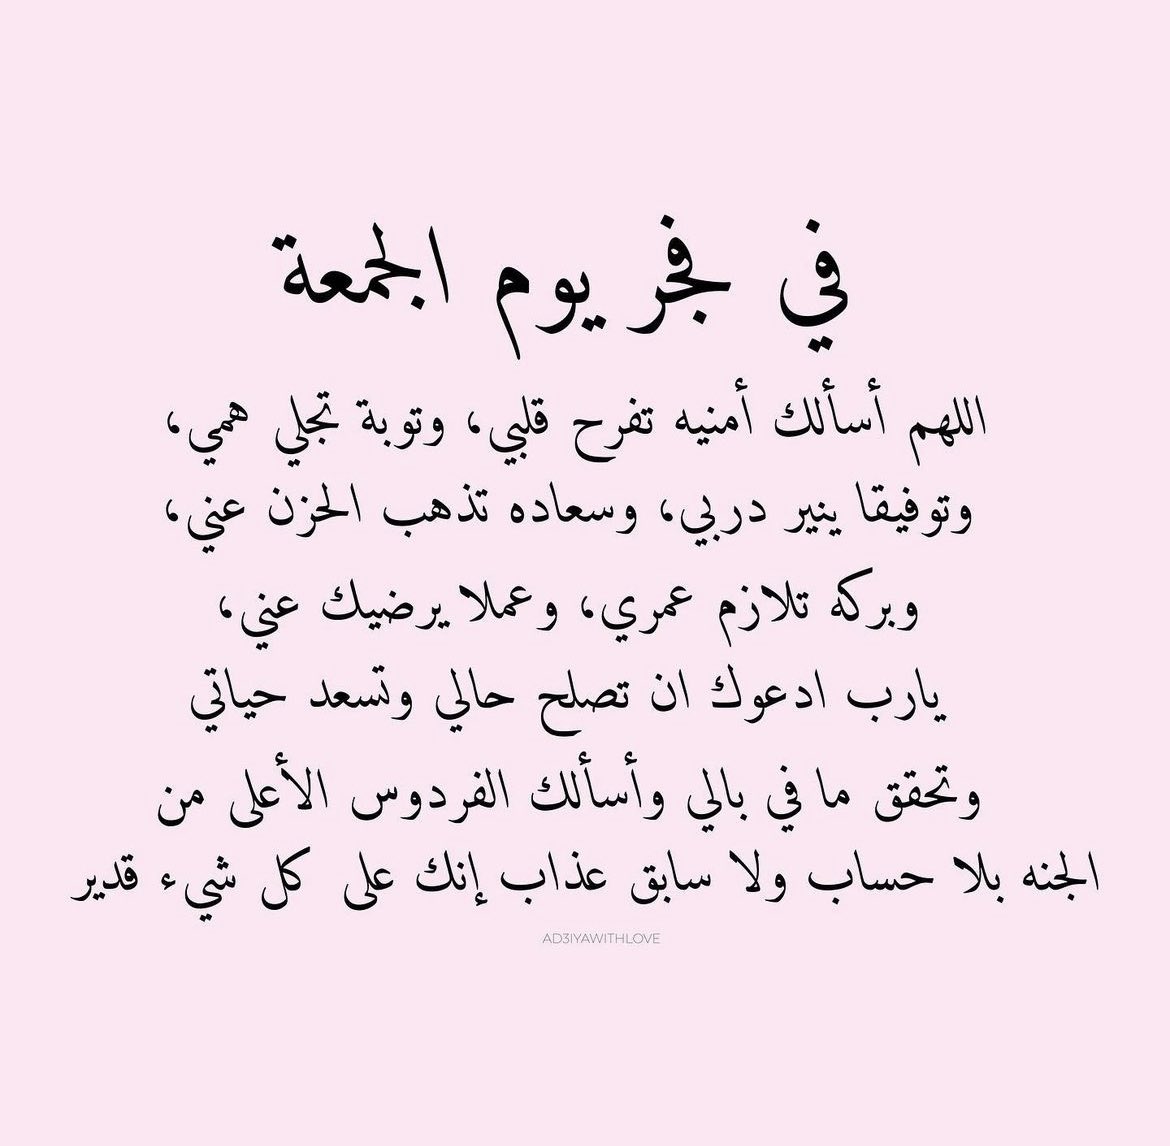 في فجر يوم الجمعة
اللهم أسألك أمنيه تفرح قلبي، وتوبة تجلي همي،
وتوفيقا ينير دربي، وسعاده تذهب الحزن عني،
وبركه تلازم عمري، وعملا يرضيك عني،
يارب ادعوك ان تصلح حالي وتسعد حياتي
وتحقق ما في بالي وأسألك الفردوس الأعلى من
الجنه بلا حساب ولا سابق عذاب إنك على كل شيء قدير
AD3IYAWITHLOVE